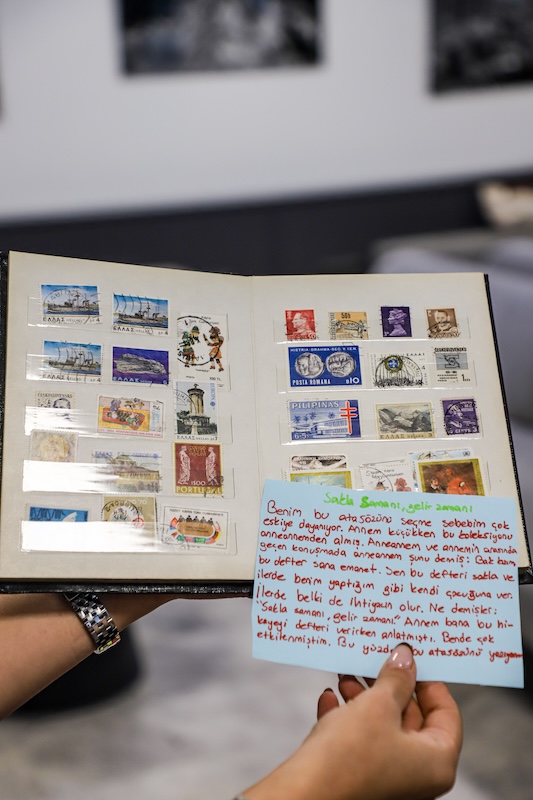 ΕΛΛΑΣ
ΕΛΛΑΣ
HISTRIA-DRAHMA-SEC.V.IEN
POSTA ROMANA 10
ČESKOSLOVENSKO
ΕΛΛΑΣ
50h
PILIPINAS
6+5
ΕΛΛΑΣ
ΕΛΛΑΣ
PORTUGAL
Sakla Samanı, gelir zamanı
Benim bu atasözünü seçme sebebim çok
eskiye dayanıyor. Annem küçükken bu koleksiyonu
anneannemden almış. Anneannem ve annemin arasında
geçen konuşmada anneannem şunu demiş: Bak kızım
bu defter sana emanet. Sen bu defteri sakla ve
ilerde benim yaptığım gibi kendi çocuğuna ver.
İlerde belki de ihtiyacın olur. Ne demişler:
"Sakla samanı, gelir zamanı." Annem bana bu hi-
kayeyi defteri verirken anlatmıştı. Bende çok
etkilenmiştim. Bu yüzd bu atasözünü yazıyorum